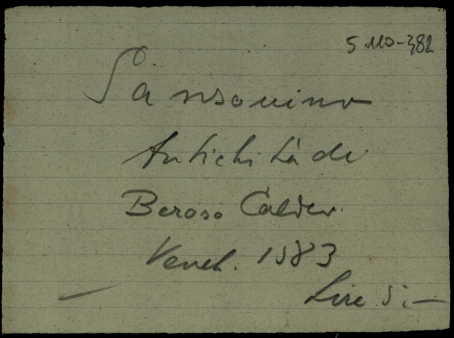 5 110-382
Sansovino
Antichità di
Beroso Caldeo.
Venet. 1583
Lire 5:—